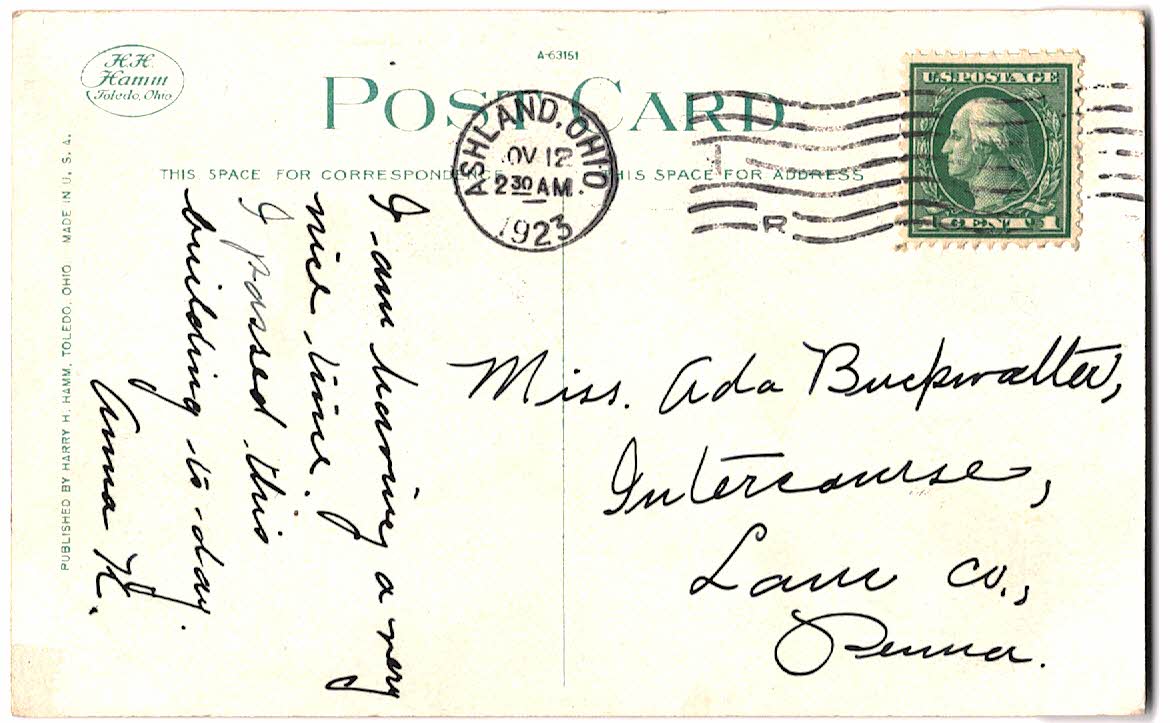 H.H.
Hamm
Toledo, Ohio
A-63151
POST CARD
THIS SPACE FOR CORRESPONDENCE
THIS SPACE FOR ADDRESS
ASHLAND, OHIO
OV 12
2 30 AM.
1923
U.S. POSTAGE
1 CENT 1
R
PUBLISHED BY HARRY H. HAMM, TOLEDO, OHIO MADE IN U. S. A.
I am having a very
nice time.
I passed this
building to-day.
Anna K.
Miss. Ada Buckwalter,
Intercourse,
Lanc Co.,
Penna.